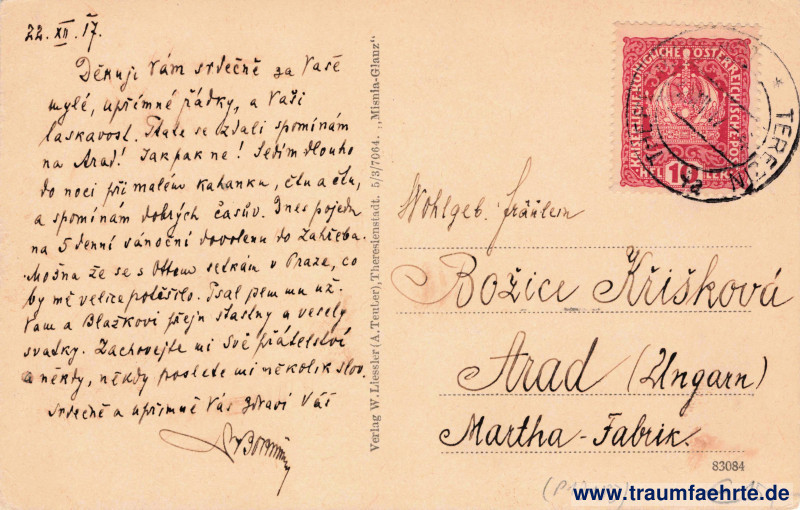 22. XII. 17.
Děkuji Vám srdečně za Vaše
mylé, upřímné řádky, a Vaši
laskavost. Stále se zdali spomínám
na Arad! Jakpak ne! Sedím dlouho
do noci při malém kahanku, čtu a čtu,
a spomínám dobrých časův. Dnes pojedu
na 5 denní vánoční dovolenu do Zahřeba.
Možna že se s Ottou setkám v Praze, co
by mě velice potěšilo. Psal jsem mu už.
Vam a Blažkovi přejn stastny a vesely
svatky. Zachovejte mi Své přátelství
a někdy, někdy poslete mi několik slov.
Srdečně a upřímně Vás zdraví Váš
Verlag W. Liessler (A. Teuter), Theresienstadt. 5/3/7064. „Misnia-Glanz"
KAISERLICHE KÖNIGLICHE ÖSTERREICHISCHE POST
HELLER 10 HELLER
TEREZÍN
Wohlgeb. Fräulein
Božice Křišková
Arad (Ungarn)
Martha-Fabrik.
83084
www.traumfaehrte.de